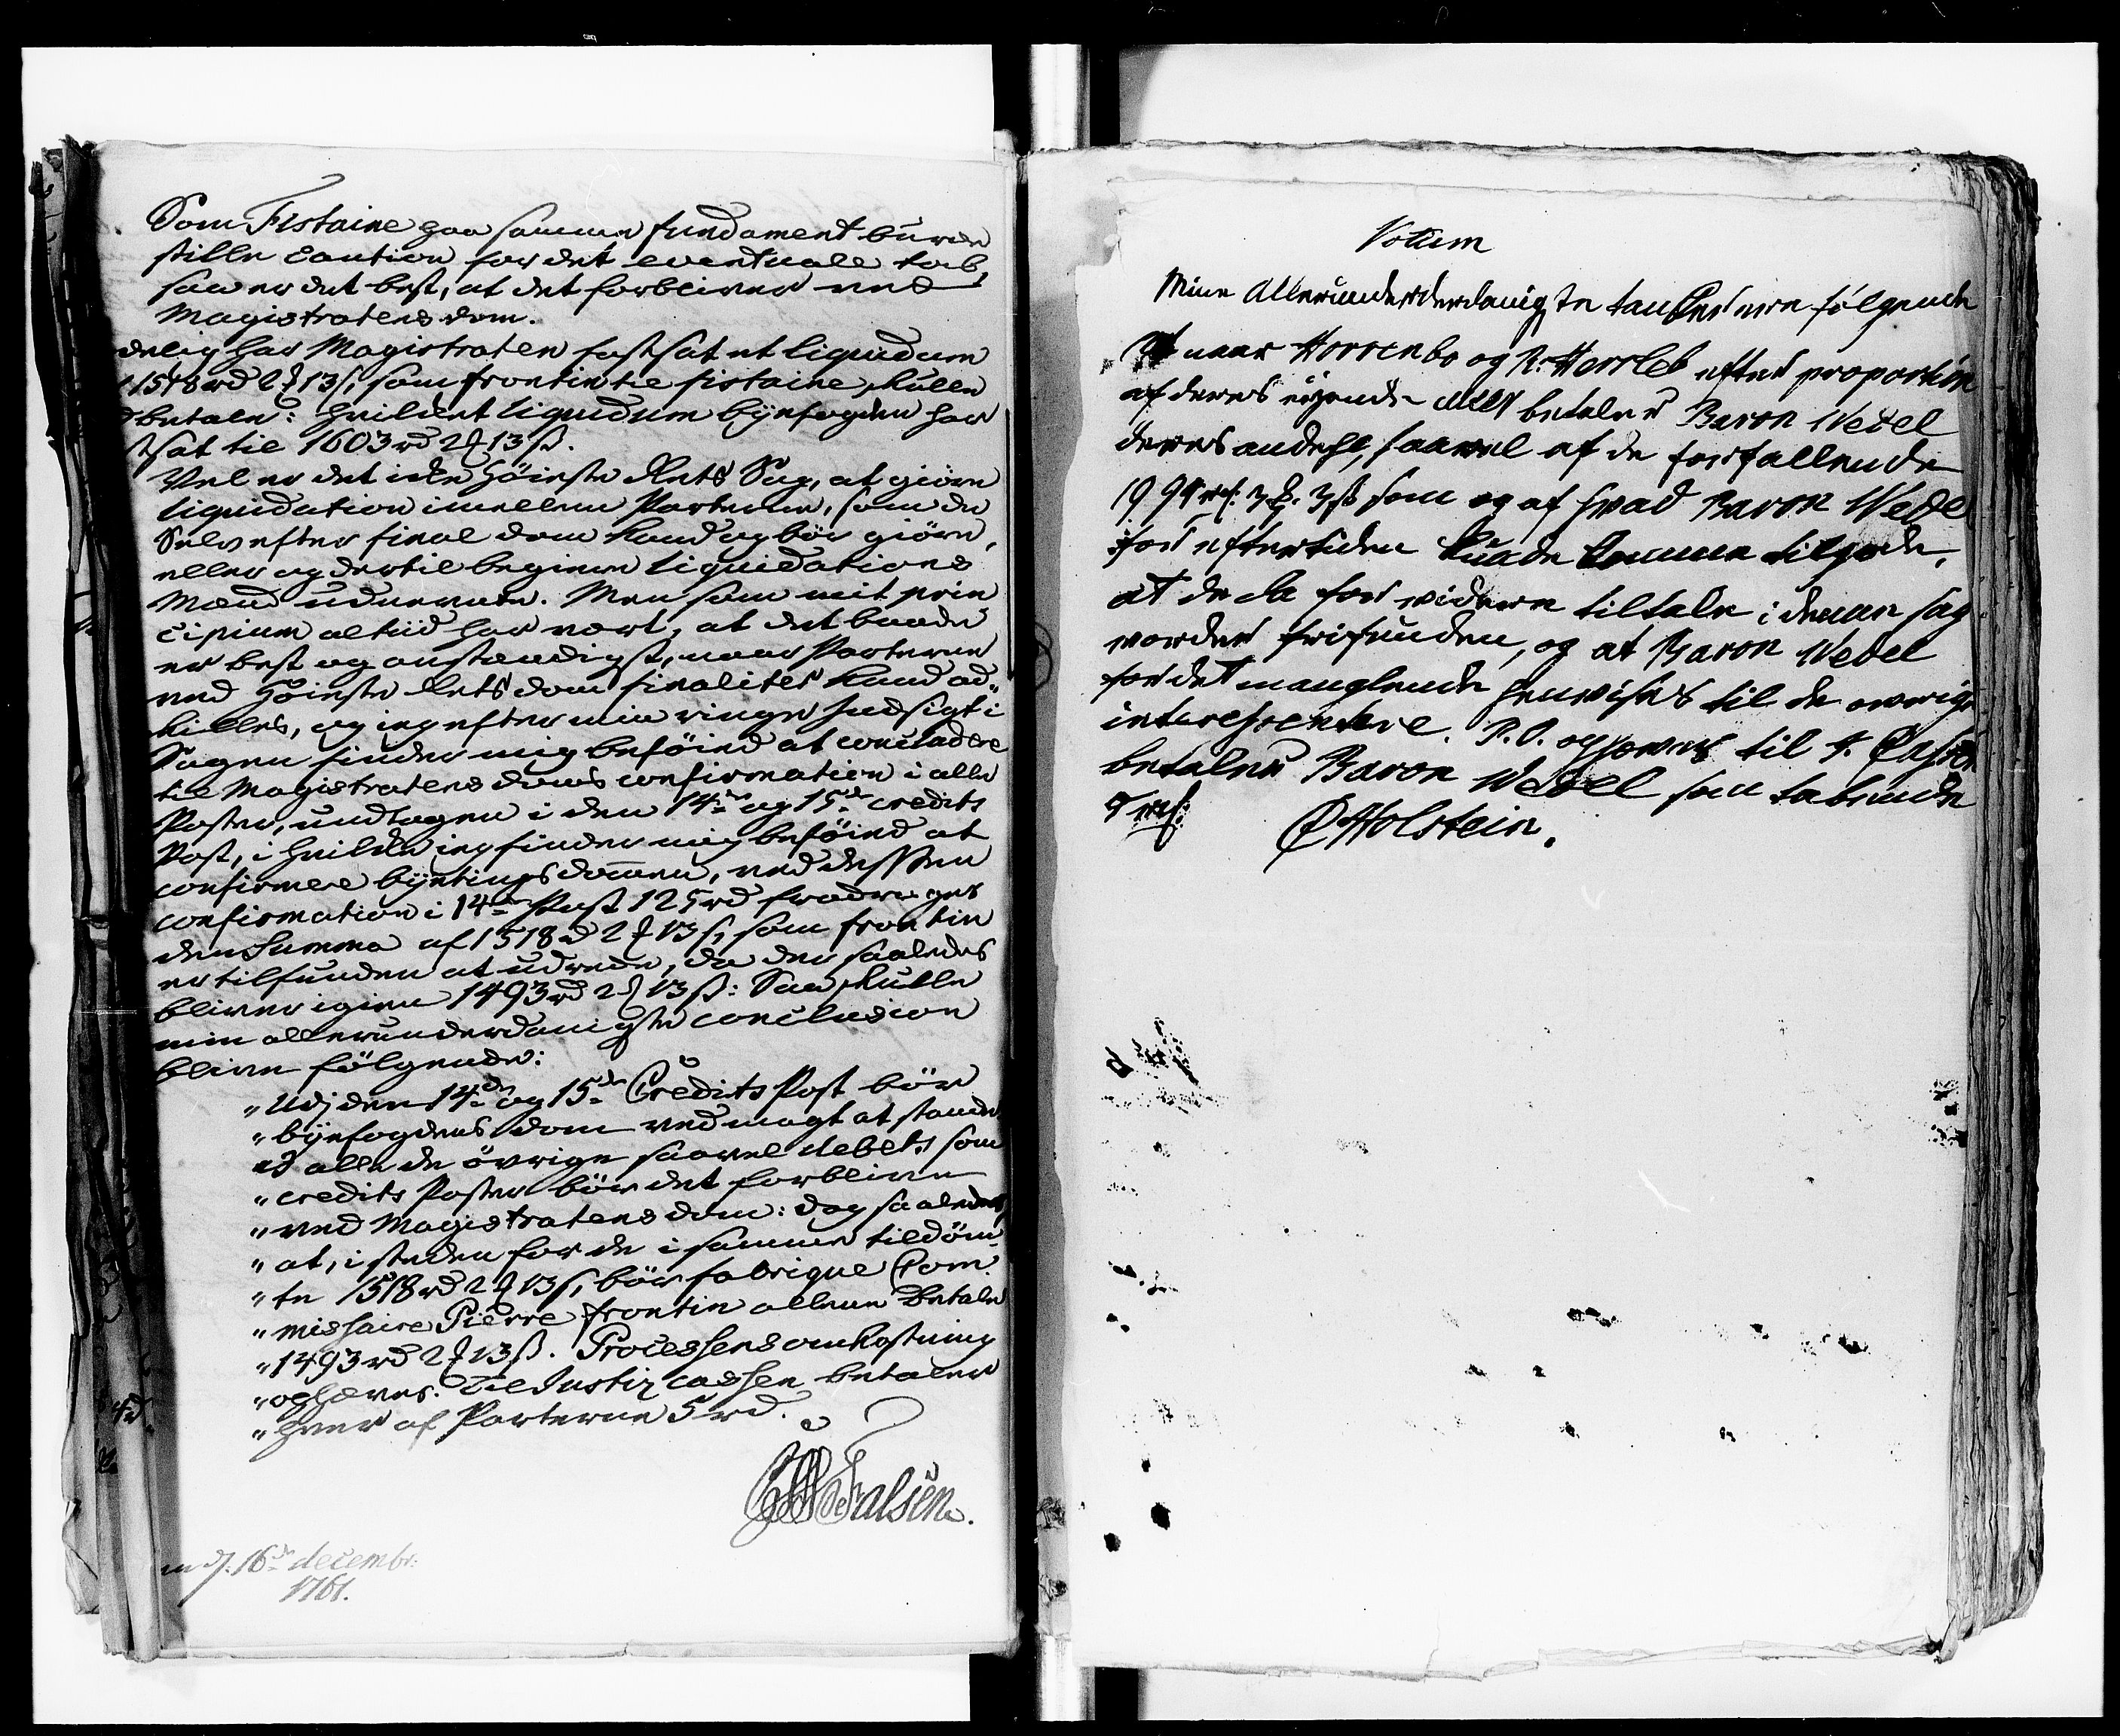 Som Fistaine paa samme fundament burde
stille Caution for det eventuelle tab,
saa er det best, at det forbliver ved
Magistratens dom.
delig har Magistraten fastsat et liquidum
1518 rd 2 13 s, som frontin til fistaine skulle
betale: hvilket liquidum byefogden har
sat til 1603 rd 2 13 s.
Vel er det icke Höieste Rets Sag, at giöre
liquidation imellem Parterne, som de
Selv efter final dom kand og bör giöre,
eller og dertil begiere liquidations
Mænd udnevnte. Men som mit prin
cipium altiid har vært, at det baade
er best og anstændigst, naar Parterne
ved Höieste Rets dom finaliter kand ad
skilles, og jeg efter min ringe Indsigt i
Sagen finder mig beföiet at concludere
til Magistratens doms confirmation i alle
Poster, undtagen i den 14de og 15de credits
Post, i hvilke jeg finder mig beföiet at
confirmere byetings dommen, ved dessen
confirmation i 14de Post 125 rd fradrages
den Summa af 1518 rd 2 13 s, som frontin
er tilfunden at udrede, da der saaledes
bliver igien 1493 rd 2 13 s: Saa skulle
min allerunderdanigste conclusion
blive fölgende:
"Udj den 14de og 15de Credits Post bör
"byefogdens dom ved magt at stande
ad alle de övrige saavel debets som
"credits Poster bör det forblive
"ved Magistratens dom: dog saaledes,
"at, i steden for de i samme tildöm
"te 1518 rd 2 13 s, bör fabrique Com
"missaire Pierre frontin allene betale
"1493 rd 2 13 s. Processens omkostning
"ophæves. Til Justiz cassen betaler
"hver af Parterne 5 rd.
de Falsen.
d. 16de decembr:
1761.
Votum
Mine Allerunderdanigste tancker ere fölgende
At naar Horrenbo og N: Herrleb efter proportion
af deres eigende betaler Baron Wedel
deres andehl, saavel af de forfallende
1994 rd: 3 3 s som og af hvad Baron Wedel
for eftertiden kunde komme tilgode,
at de da for videre tiltale i denne sag
vorder frifunden, og at Baron Wedel
for det manglende henvises til de övrige
interessentere. P.O. ophæves til J. Cassen
betaler Baron Wedel som tabende
rd:
Holstein.